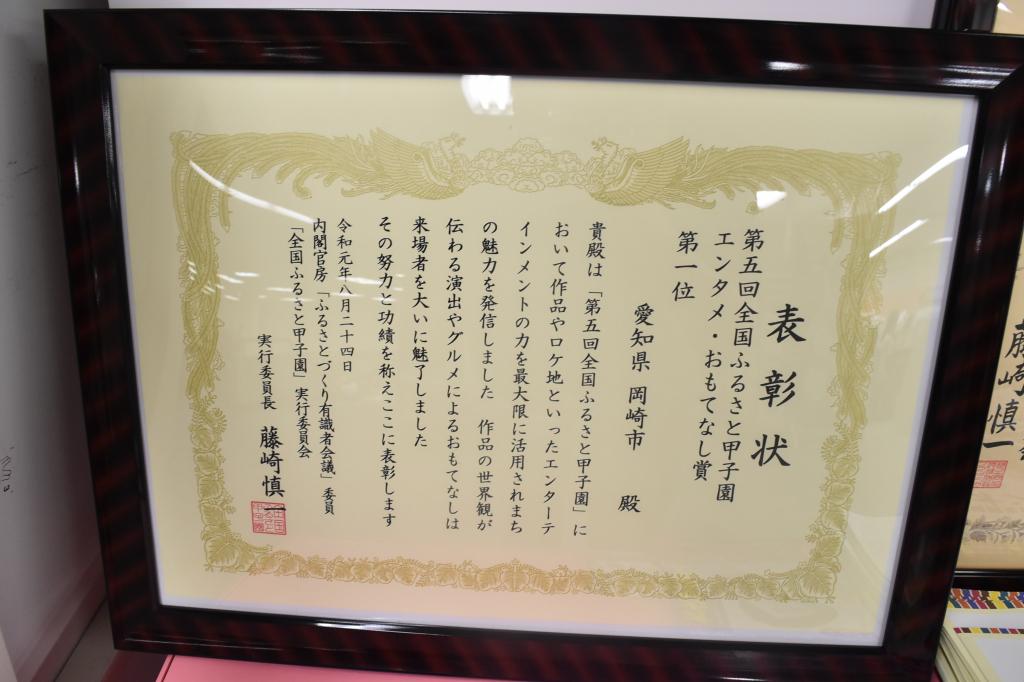 表彰状
第五回全国ふるさと甲子園
エンタメ・おもてなし賞
第一位
愛知県 岡崎市 殿
貴殿は「第五回全国ふるさと甲子園」に
おいて作品やロケ地といったエンターテ
インメントの力を最大限に活用されまち
の魅力を発信しました 作品の世界観が
伝わる演出やグルメによるおもてなしは
来場者を大いに魅了しました
その努力と功績を称えここに表彰します
令和元年八月二十四日
内閣官房「ふるさとづくり有識者会議」委員
「全国ふるさと甲子園」実行委員会
実行委員長 藤崎慎一
藤崎慎一